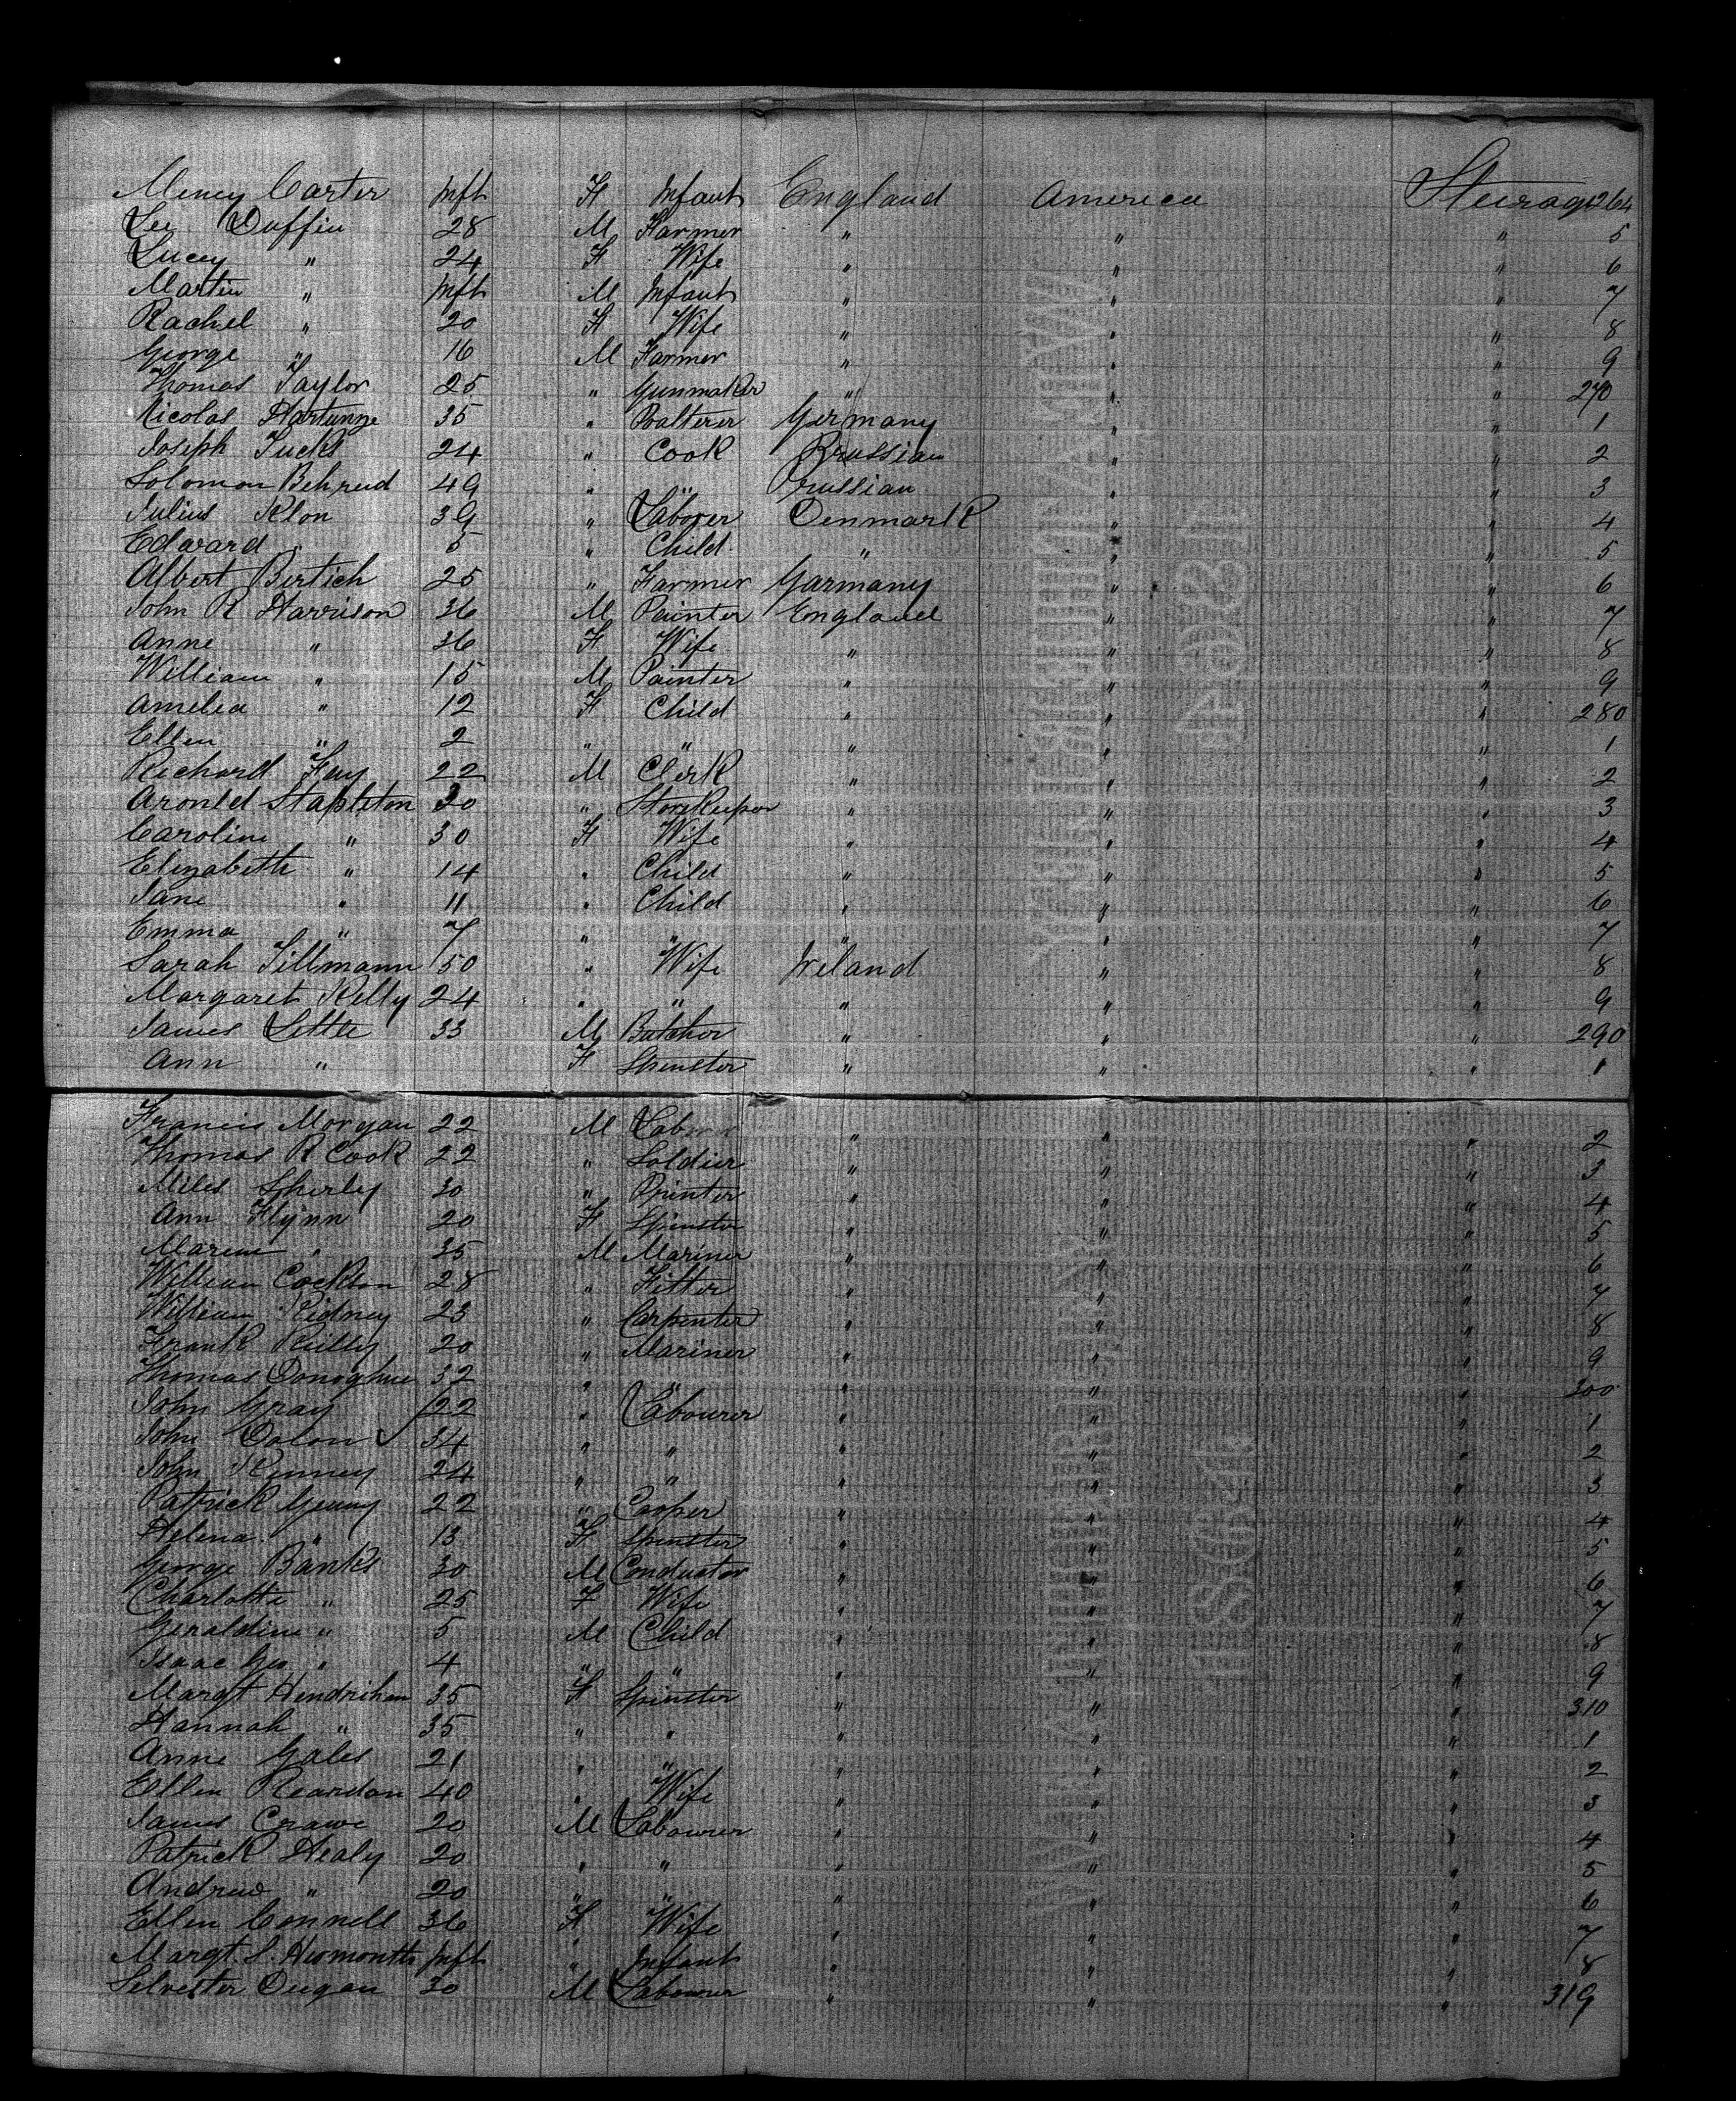 Meney Carter Inft F Infant England America Steerage 264
Lee Duffin 28 M Farmer " " " 5
Lucey " 24 F Wife " " " 6
Martin " Inft M Infant " " " 7
Rachel " 20 F Wife " " " 8
George " 16 M Farmer " " " 9
Thomas Taylor 25 " Gunmaker " " " 270
Nicolas Hartunge 35 " Poalterer Germany " " 1
Joseph Tucks 24 " Cook Prussian " " 2
Solomon Behrend 49 " " Prussian " " 3
Julius Klon 39 " Laborer Denmark " " 4
Edward " 5 " Child " " " 5
Albert Bertich 25 " Farmer Garmany " " 6
John R Harrison 36 M Painter England " " 7
Anne " 36 F Wife " " " 8
William " 15 M Painter " " " 9
Amelia " 12 F Child " " " 280
Ellen " 2 " " " " " 1
Richard Fay 22 M Clerk " " " 2
Aronld Stapleton 30 " Storekeeper " " " 3
Caroline " 30 F Wife " " " 4
Elizabeth " 14 " Child " " " 5
Jane " 11 " Child " " " 6
Emma " 7 " " " " " 7
Sarah Tillmann 50 " Wife Ireland " " 8
Margaret Kelly 24 " " " " " 9
James Little 33 M Butcher " " " 290
Ann " F Spinster " " " 1
Francis Morgan 22 M Labr " " " 2
Thomas R Cook 22 " Soldier " " " 3
Miles Sherley 30 " Printer " " " 4
Ann Flynn 20 F Spinster " " " 5
" 35 M Mariner " " " 6
William Cockson 28 " Fitter " " " 7
William Kidney 23 " Carpenter " " " 8
Frank Reilly 20 " Mariner " " " 9
Thomas Donoghue 32 " " " " " 300
John Gray 22 " Labourer " " " 1
John Dolon 34 " " " " " 2
John Kenney 24 " " " " " 3
Patrick Geany 22 " Cooper " " " 4
Helena " 13 F Spinster " " " 5
George Banks 30 M Conductor " " " 6
Charlotte " 25 F Wife " " " 7
Geraldine " 5 M Child " " " 8
Isaac Geo " 4 " " " " " 9
Margt Hendrihan 35 F Spinster " " " 310
Hannah " 35 " " " " " 1
Anne Gales 21 " " " " " 2
Ellen Reardon 40 " Wife " " " 3
James Crawe 20 M Labourer " " " 4
Patrick Healy 20 " " " " " 5
Andrew " 20 " " " " " 6
Ellen Connell 36 F Wife " " " 7
Margt S. Inft " Infant " " " 8
Selvester Dugan 30 M Labourer " " " 319
1864
1864